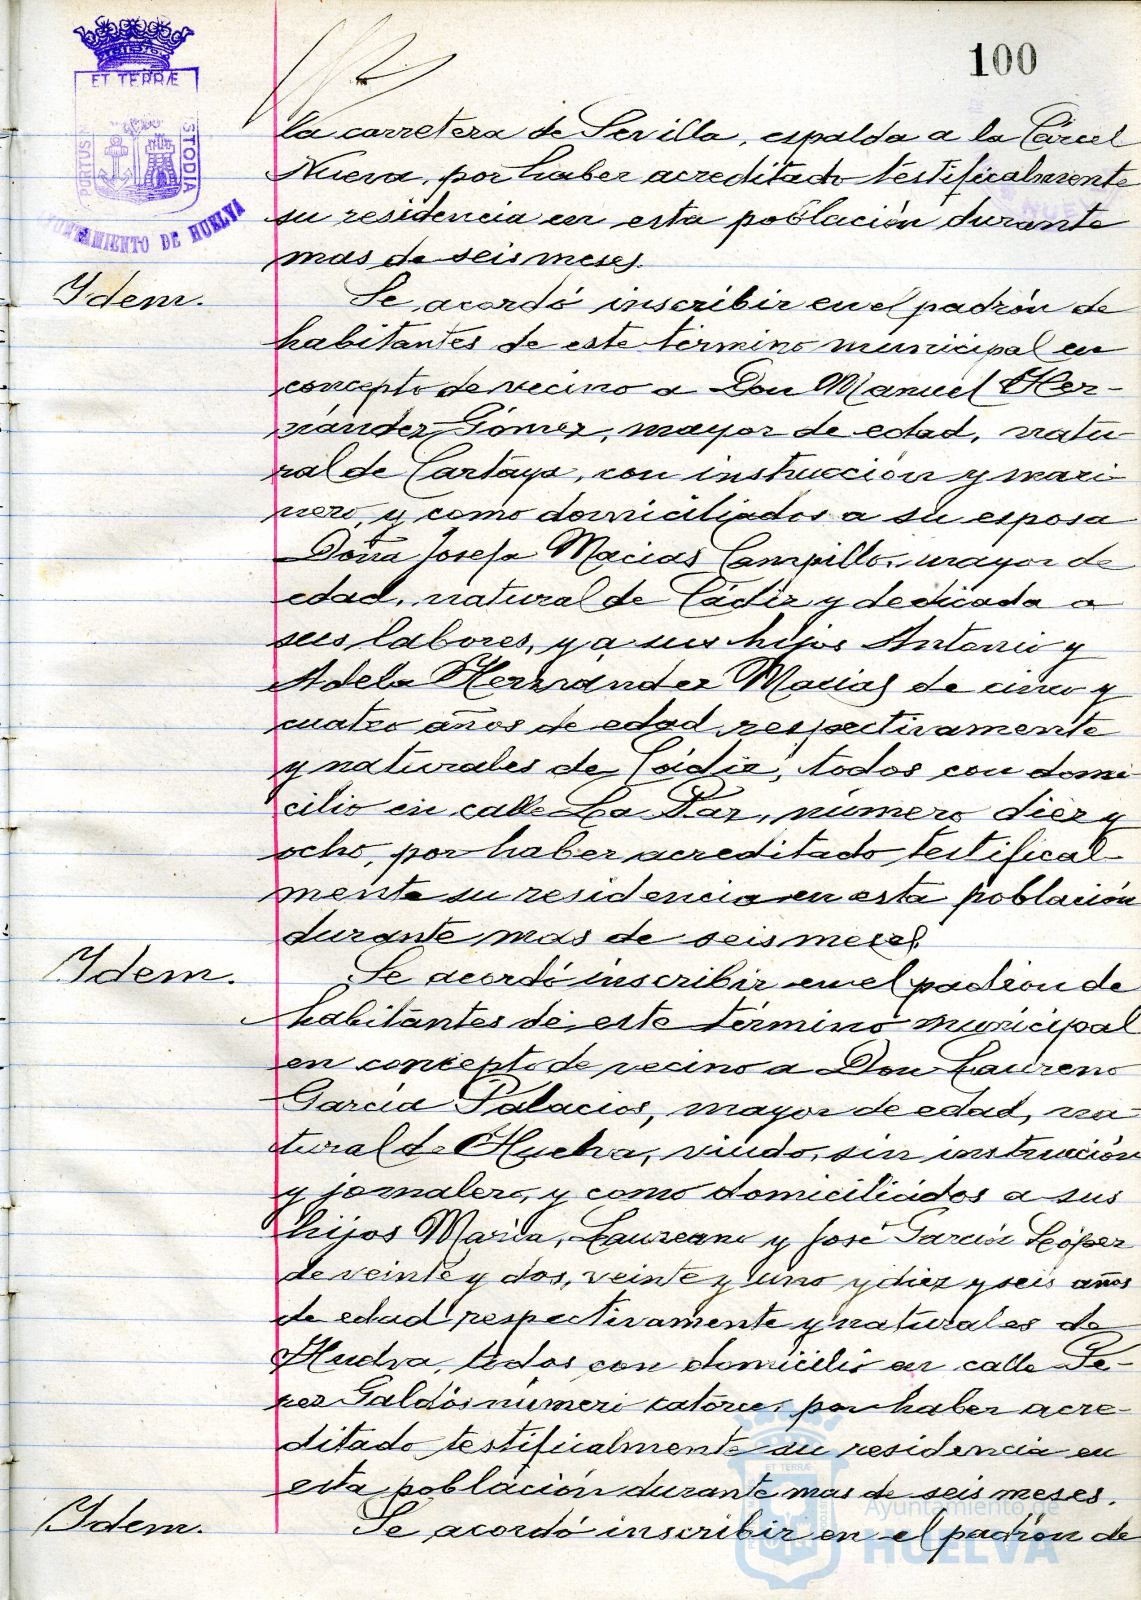 100
ET TERRÆ
PORTUS
STODIA
AYUNTAMIENTO DE HUELVA
la carretera de Sevilla, espalda a la Cárcel
Nueva, por haber acreditado testificalmente
su residencia en esta población durante
mas de seis meses.
Idem.
Se acordó inscribir en el padrón de
habitantes de este término municipal en
concepto de vecino a Don Manuel Her-
nández Gómez, mayor de edad, natu-
ral de Cartaya, con instrucción y mari-
nero, y como domiciliados a su esposa
Doña Josefa Macias Campillo, mayor de
edad, natural de Cádiz y dedicada a
sus labores, y a sus hijos Antonio y
Adela Hernández Macias de cinco y
cuatro años de edad respectivamente
y naturales de Cádiz, todos con domi-
cilio en calle La Paz, número diez y
ocho, por haber acreditado testifical-
mente su residencia en esta población
durante mas de seis meses.
Idem.
Se acordó inscribir en el padrón de
habitantes de este término municipal
en concepto de vecino a Don Laureno
García Palacios, mayor de edad, na-
tural de Huelva, viudo, sin instrucción
y jornalero, y como domiciliados a sus
hijos María, Laureano y José García López
de veinte y dos, veinte y uno y diez y seis años
de edad respectivamente y naturales de
Huelva, todos con domicilio en calle Pe-
rez Galdós número catorce, por haber acre-
ditado testificalmente su residencia en
esta población durante mas de seis meses.
Idem.
Se acordó inscribir en el padrón de
Ayuntamiento de
HUELVA